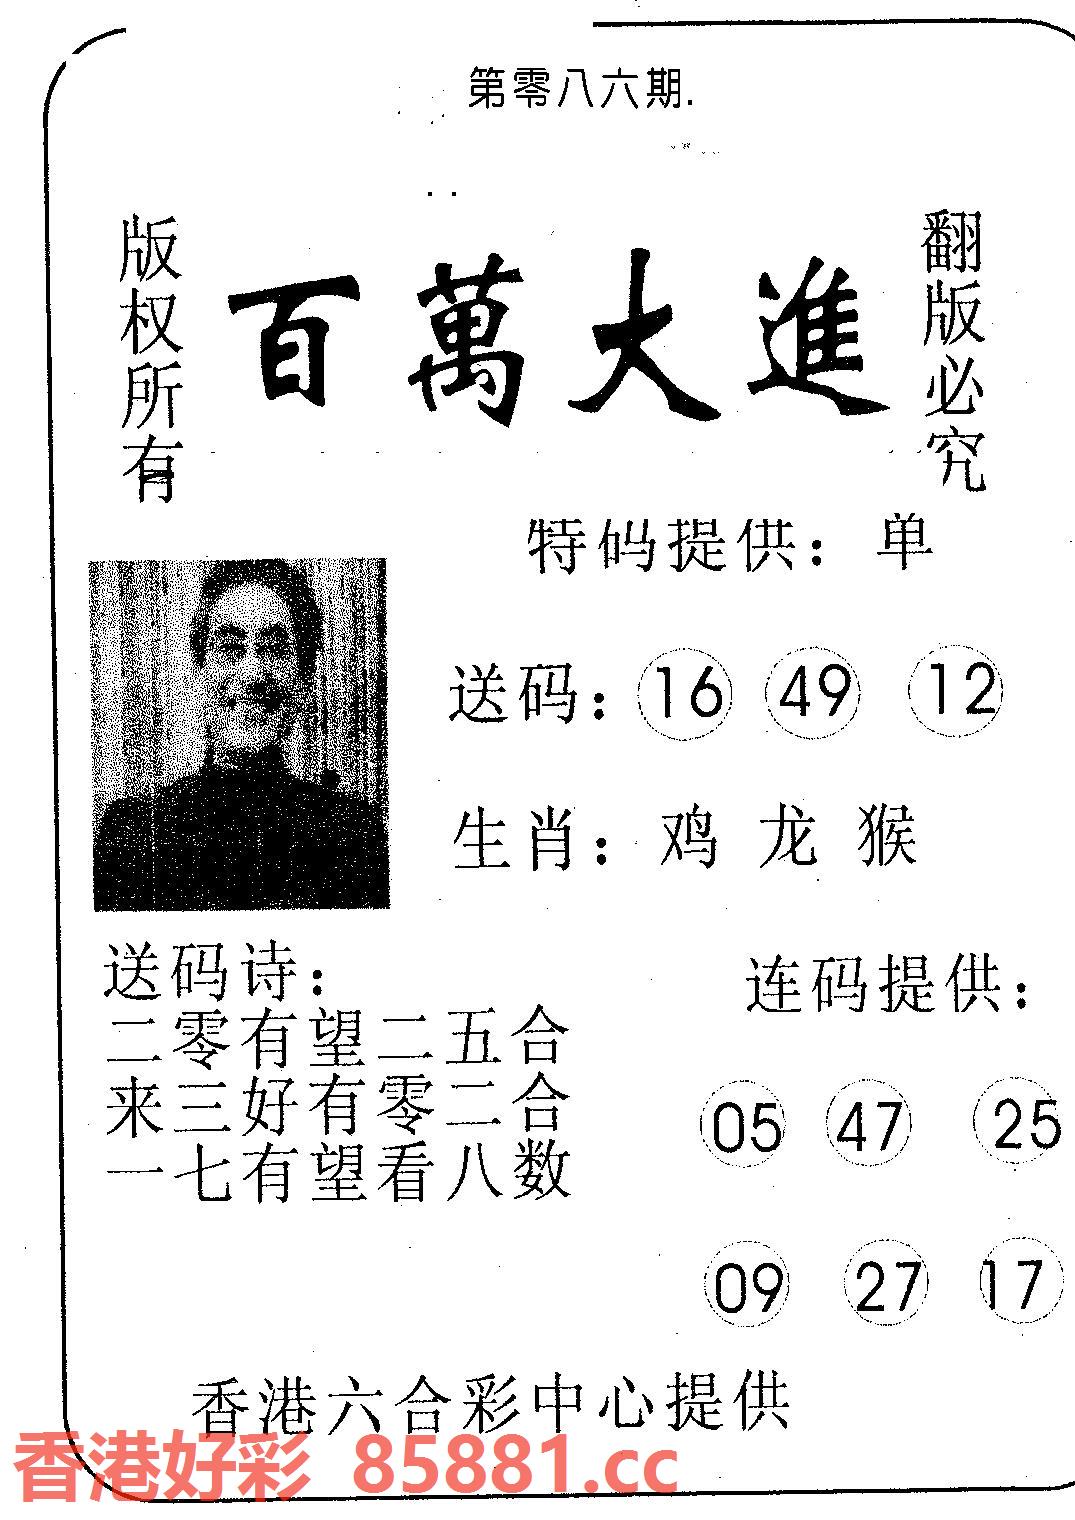 第零八六期.
版权所有
百萬大進
翻版必究
特码提供：单
送码：16 49 12
生肖：鸡 龙 猴
送码诗：
二零有望二五合
来三好有零二合
一七有望看八数
连码提供：
05 47 25
09 27 17
香港六合彩中心提供
香港好彩 85881.cc